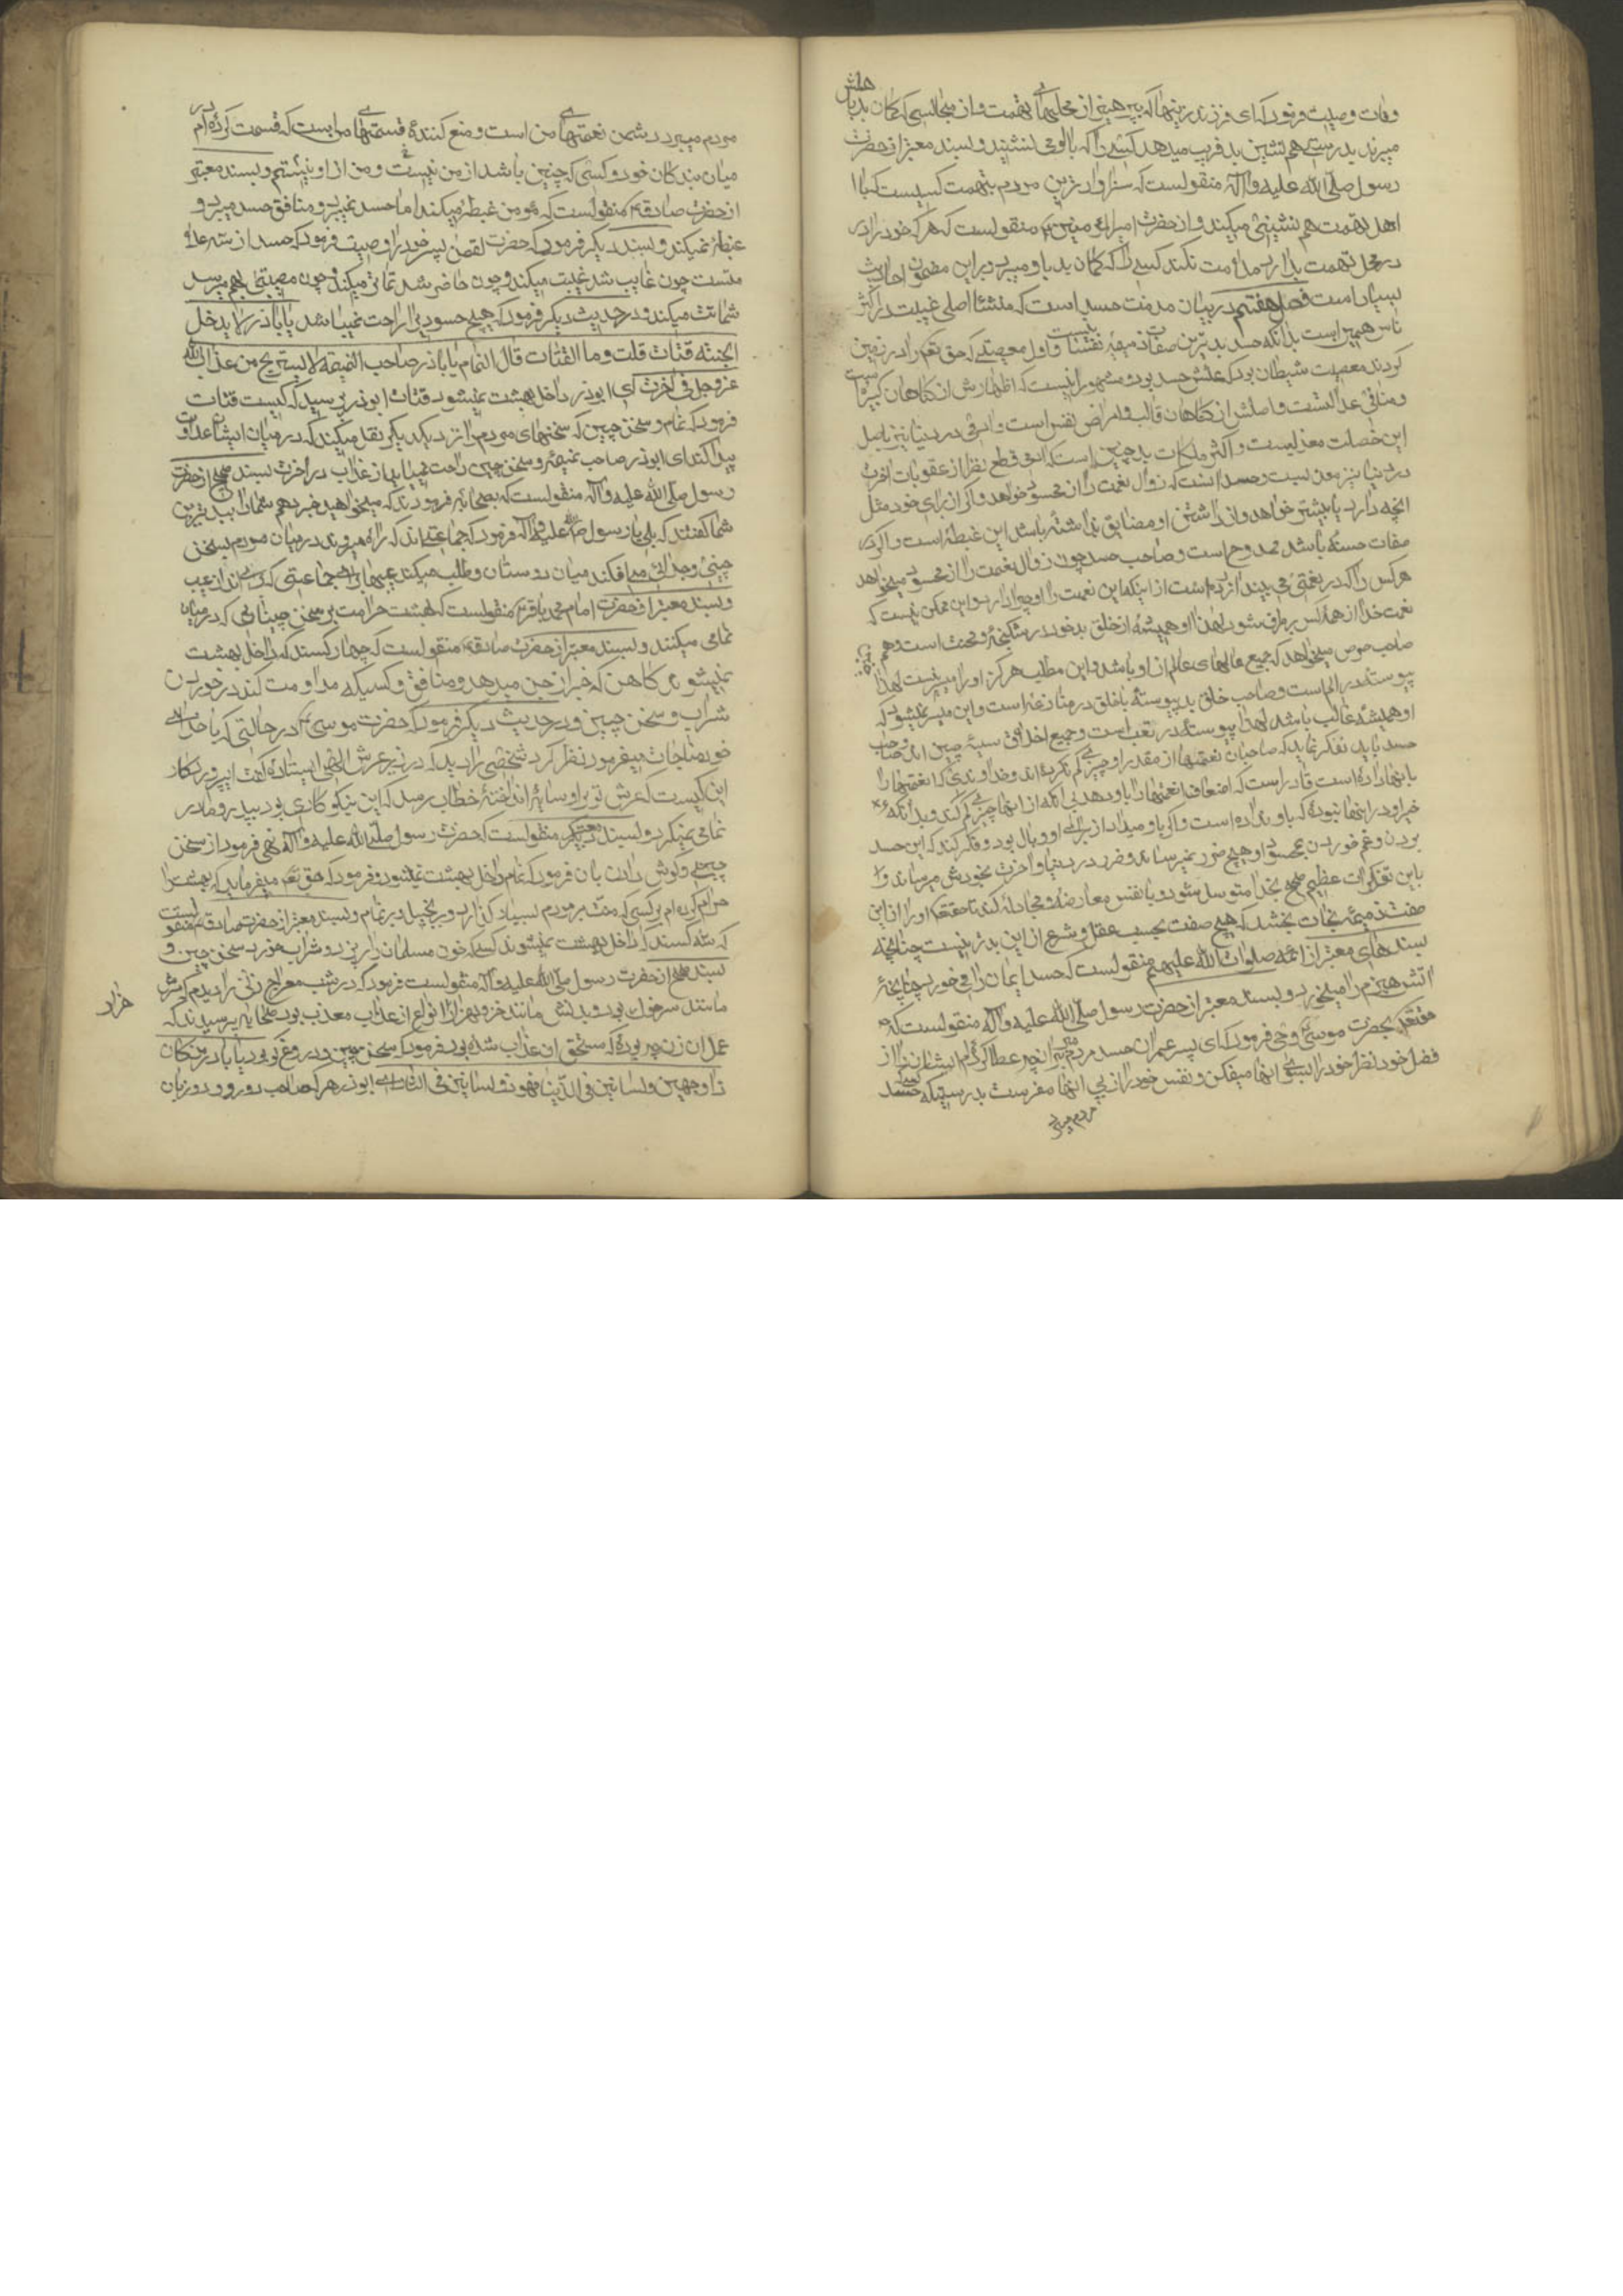 وفات وصیت فرمود که ای فرزند زینهار که بپرهیز از محلهای تهمت و از مجالسی که کمان بد باهلش
میبرند بدرستی که هم نشین بد فریب میدهد کسی را که با او می نشیند و بسند معتبر از حضرت
رسول صلّی الله علیه وآله منقولست که سزاوارترین مردم بتهمت کسیست که با
اهل تهمت هم نشینی میکند و از حضرت امیرالمؤمنین ع منقولست که هر که خود را در
در محل تهمت بدارد ملامت نکند کسی را که کمان بد باو میبرد و براین مضمون احادیث
بسیار است فصل هفتم در بیان مذمت حسد است که منشأ اصلی غیبت در اکثر
ناس همین است بدانکه حسد بدترین صفات ذمیمه نفسانیست و اول معصیتی که حق تعم را در زمین
کردند معصیت شیطان بود که علتش حسد بود و مشهور اینست که اظهارش از کناهان کبیره است
و منافی عدالتست و اصلش از کناهان قلب و امراض نفس است و
این خصلت معذبست و اکثر ملکات بد چنین است که قطع نظر از عقوبات اخرت
در دنیا نیز معذبست و حسد انست که زوال نعمت را از محسود خواهد و اگر از برای خود مثل
انچه دارد یا بیشتر خواهد و از داشتن او مضایقه نداشته باشد این غبطه است و اگر در
صفات حسنه باشد ممدوح است و صاحب حسد چون زوال نعمت را از محسود میخواهد
هر کس را که در نعمتی می بیند آزرده است از اینکه این نعمت را او چرا دارد و این ممکن نیست که
نعمت خدا از همه کس برطرف شود لهذا او همیشه از خلق بد خود در شکنجه و محنت است و همچنین
صاحب حرص میخواهد که جمیع مالهای عالم از او باشد و این مطلب هرکز او را میسر نیست لهذا
پیوسته در الم است و صاحب خلق بد پیوسته با خلق در منازعه است و این میسر نمیشود که
او همیشه غالب باشد لهذا پیوسته در تعب است و جمیع اخلاق سیئه چنین اند و صاحب
حسد باید تفکر نماید که صاحبان نعمتها از مقدر او چیزی کم نکرده اند و خداوندی که نعمتها را
باینها داده است قادر است که اضعاف نعمتها را باو بدهد بی انکه از اینها چیزی کم کند و بدانکه
خیر او در اینها نبوده که باو نداده است و اگر باو میداد از برای او وبال بود و فکر کند که این حسد
بردن و غم خوردن بمحسود او هیچ ضرر نمیرساند و ضرر در دنیا و اخرت بخودش میرساند و
باین تفکرات عظیم صحیح بخدا متوسل شود و با نفس معارضه و مجادله کند تا حقتعم او را از این
صفت ذمیمه نجات بخشد که هیچ صفت بحسب عقل و شرع از این بدتر نیست چنانچه
بسندهای معتبر از ائمه صلوات الله علیهم منقولست که حسد ایمان را میخورد چنانچه
اتش هیزم را میخورد و بسند معتبر از حضرت رسول صلّی الله علیه وآله منقولست که
حقتعم بحضرت موسی وحی فرمود که ای پسر عمران حسد مبر مردم را بر انچه عطا کرده ام ایشان را از
فضل خود و نظر خود را بسوی اینها میفکن و نفس خود را از پی اینها مفرست بدرستیکه کسیکه حسد
مردم میبرد
مردم میبرد دشمن نعمتهای من است و منع کننده قسمتهای مراست که قسمت کرده ام در
میان بندکان خود و کسی که چنین باشد از من نیست و من از او نیستم و بسند معتبر
از حضرت صادق ع منقولست که مؤمن غبطه میکند اما حسد نمیبرد و منافق حسد میبرد و
غبطه نمیکند و بسند دیکر فرمود که حضرت لقمن پسر خود را وصیت فرمود که حسد را سه علا
متست چون غایب شد غیبت میکند و چون حاضر شد تملق میکند و چون مصیبتی بهم میرسد
شماتت میکند و در حدیث دیکر فرمود که هیچ حسودی را راحت نمیباشد یا باذر لا یدخل
الجنته قتات قلت وما القتات قال النمام یا باذر صاحب النمیمة لا یستریح من عذاب الله
عز وجل فی الاخرت ای ابوذر داخل بهشت نمیشود قتات ابوذر پرسید که کیست قتات
فرمود که نمام و سخن چین که سخنهای مردم را نزد یکدیکر نقل میکند که در میان ایشان عداوت
پیدا کند ای ابوذر صاحب نمیمه و سخن چین راحت نمییابد از عذاب در اخرت بسند صحیح از حضرت
رسول صلّی الله علیه وآله منقولست که بصحابه فرمودند که میخواهید خبر دهم شما را ببدترین
شما کفتند که بلی یا رسول الله صلی الله علیه وآله فرمود که جماعتی اند که راه میروند در میان مردم بسخن
چینی و جدائی می افکند میان دوستان و طلب میکند عیبها برای جماعتی که بری اند از عیب
و بسند معتبر از حضرت امام محمد باقر ع منقولست که بهشت حرامت بر سخن چینانی که در میان
نمامی میکنند و بسند معتبر از حضرت صادق ع منقولست که چهار کسند که داخل بهشت
نمیشوند کاهن که خبر از جن میدهد و منافق و کسیکه مداومت کند در خوردن
شراب و سخن چین و در حدیث دیکر فرمود که حضرت موسی ع در حالتی که با خدای
خود مناجات میفرمود نظر کرد شخصی را دید که در زیر عرش الهی ایستاده کفت ای پروردکار
این کیست که عرش تو بر او سایه انداخته خطاب رسید که این نیکوکاری بود بپدر و مادر
نمامی نمیکرد و بسند معتبر دیکر منقولست که حضرت رسول صلّی الله علیه وآله نهی فرمود از سخن
چینی و کوش دادن بان فرمود که نمام داخل بهشت نمیشود و فرمود که حق تعم میفرماید که بهشت را
حرام کرده ام بر کسی که منت بر مردم بسیار کذارد و بر بخیل و بر نمام و بسند معتبر از حضرت صادق ع منقولست
که سه کسند که داخل بهشت نمیشوند کسی که خون مسلمانان را ریزد و شراب خورد و سخن چین و
بسند صحیح از حضرت رسول صلی الله علیه وآله منقولست فرمود که در شب معراج زنی را دیدم که سرش
مانند سر خوک بود و بدنش مانند خر و بهزار هزار انواع از عذاب معذب بود صحابه پرسیدند که
عمل ان زن چه بوده که مستحق ان عذاب شده بود فرمود که سخن چین و دروغ کو بود یا باذر من کان
ذا وجهین ولسانین فی الدّنیا فهو ذو لسانین فی النار ای ابوذر هر که صاحب دو رو و دو زبان